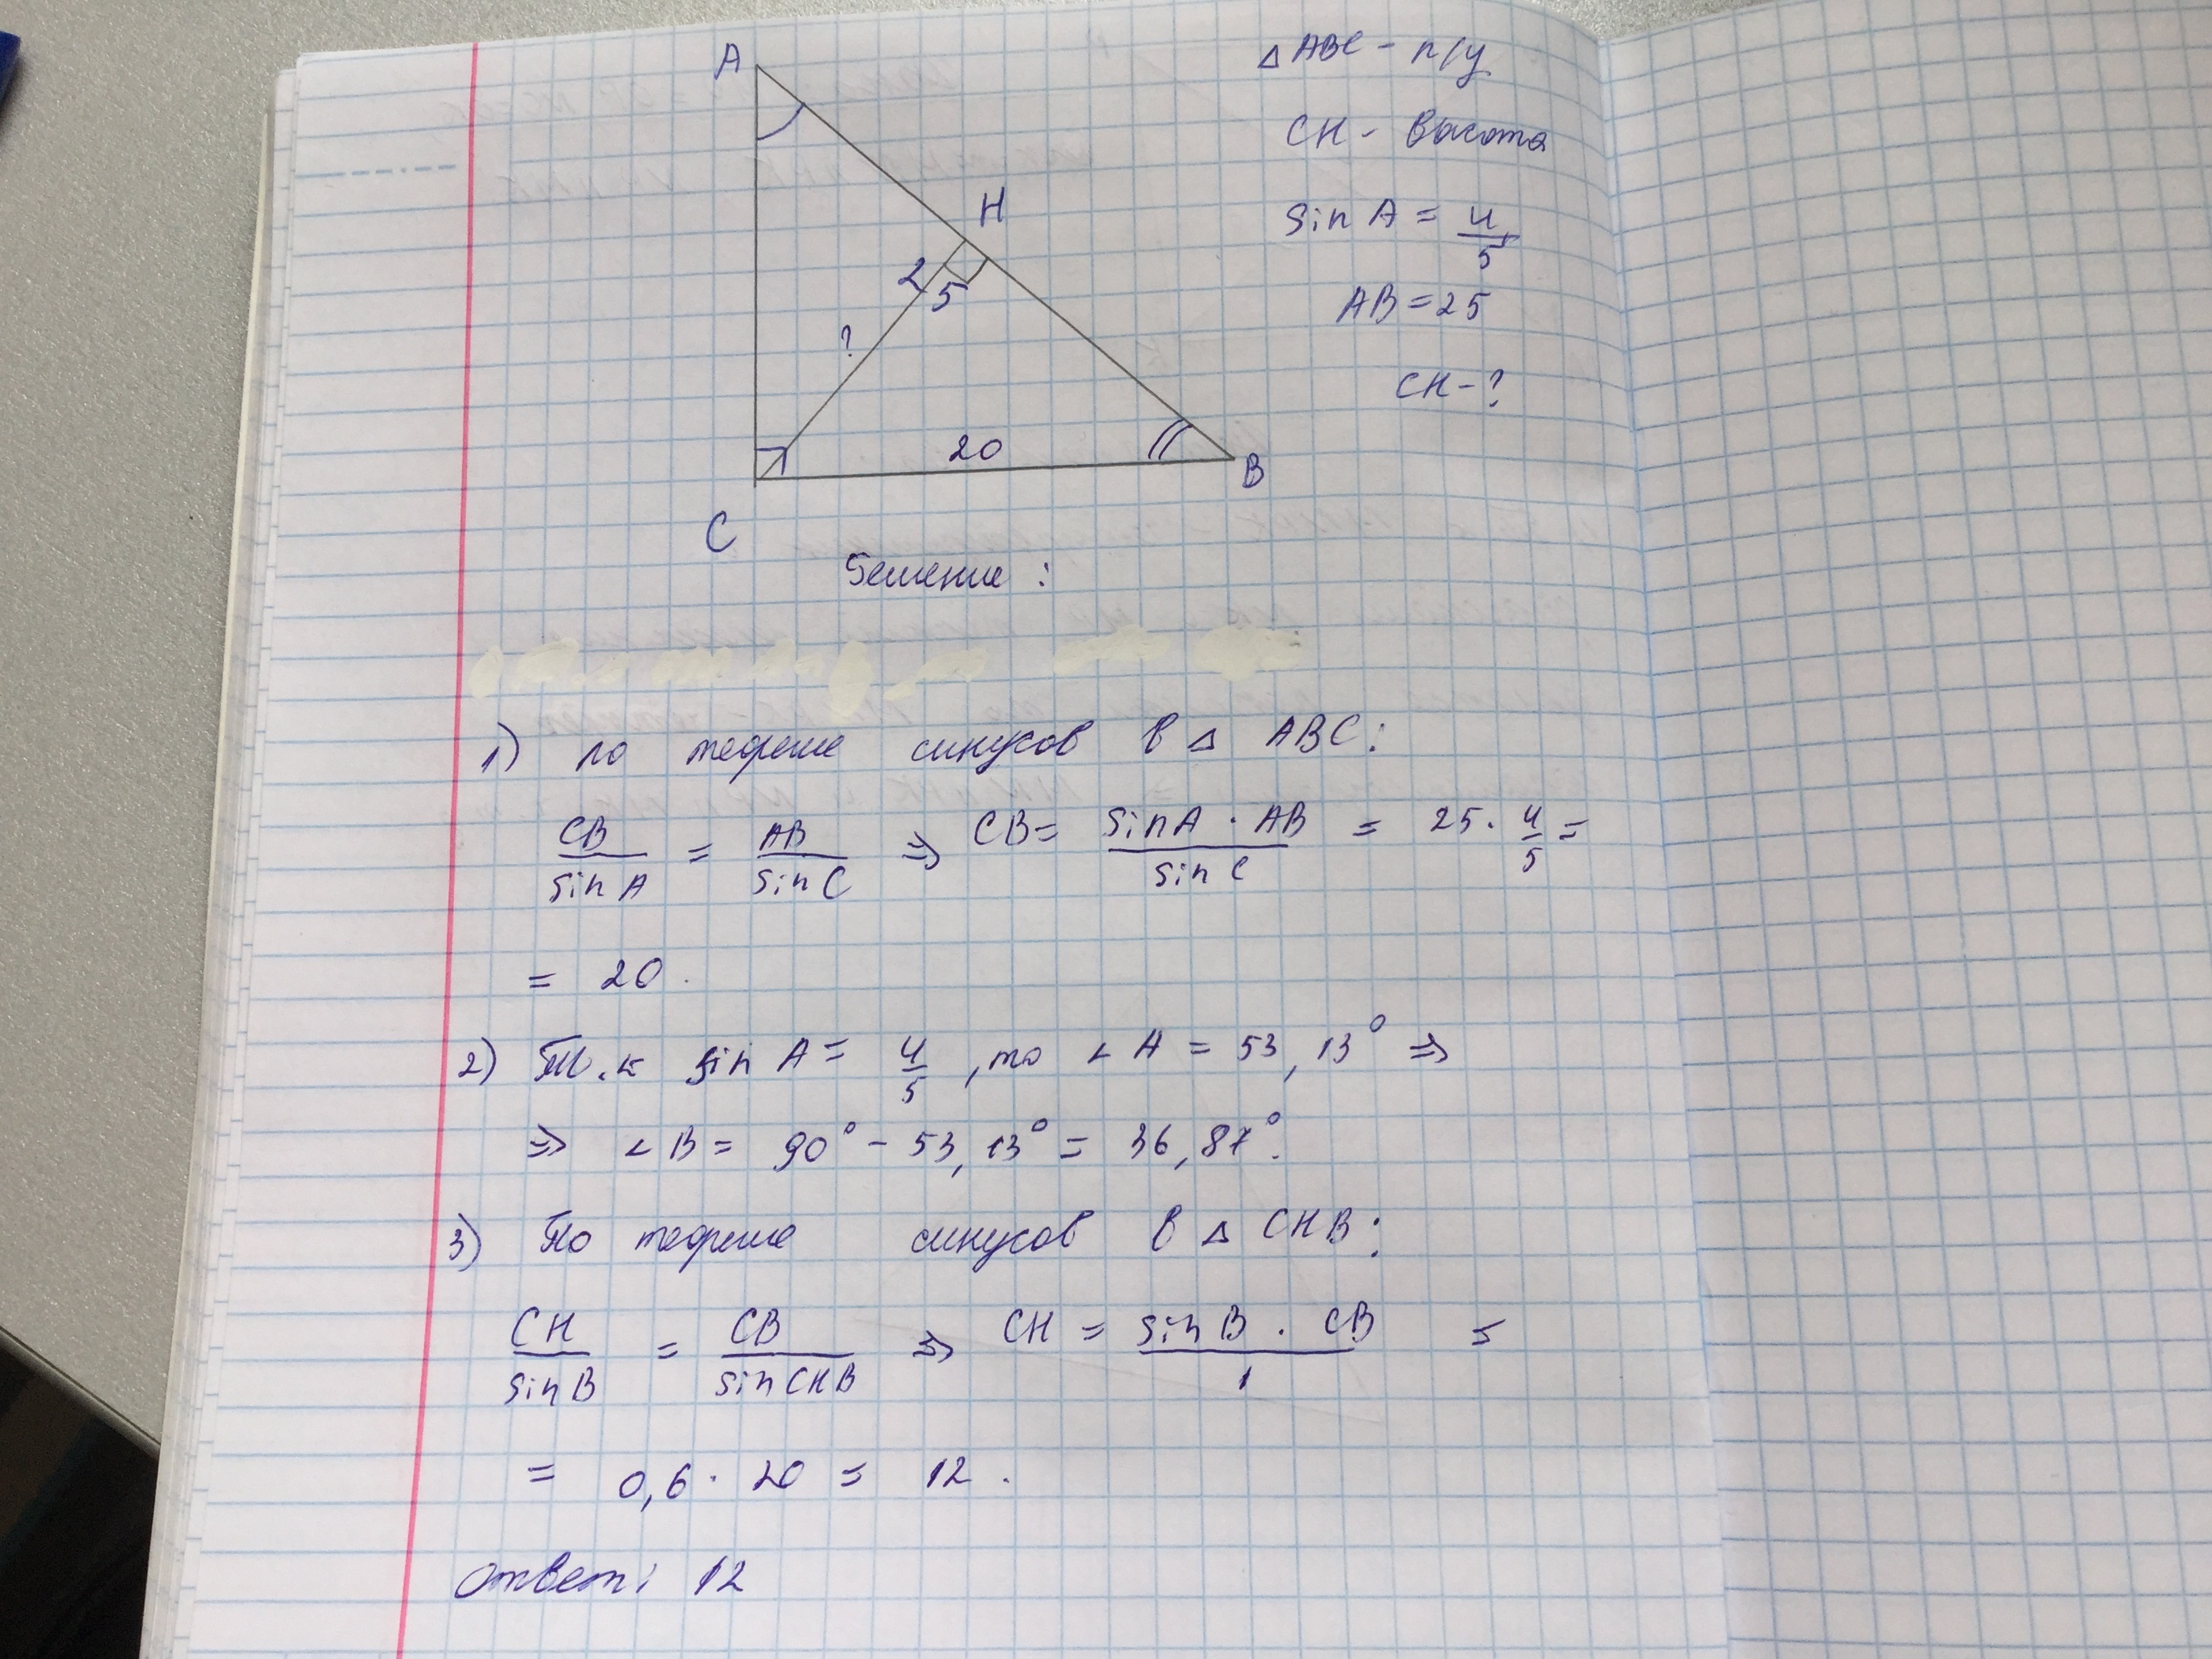 A
H
2 5
?
20
B
C
△ ABC - п/у
CH - высота
sin A = 4/5
AB = 25
CH - ?
Решение :
1) по теореме синусов в △ ABC :
CB/sin A = AB/sin C ⇒ CB = sin A · AB/sin C = 25 · 4/5 =
= 20 .
2) Т.к sin A = 4/5 , то ∠A = 53,13° ⇒
⇒ ∠B = 90° - 53,13° = 36,87° .
3) По теореме синусов в △ CHB :
CH/sin B = CB/sin CHB ⇒ CH = sin B · CB/1 =
= 0,6 · 20 = 12 .
Ответ: 12